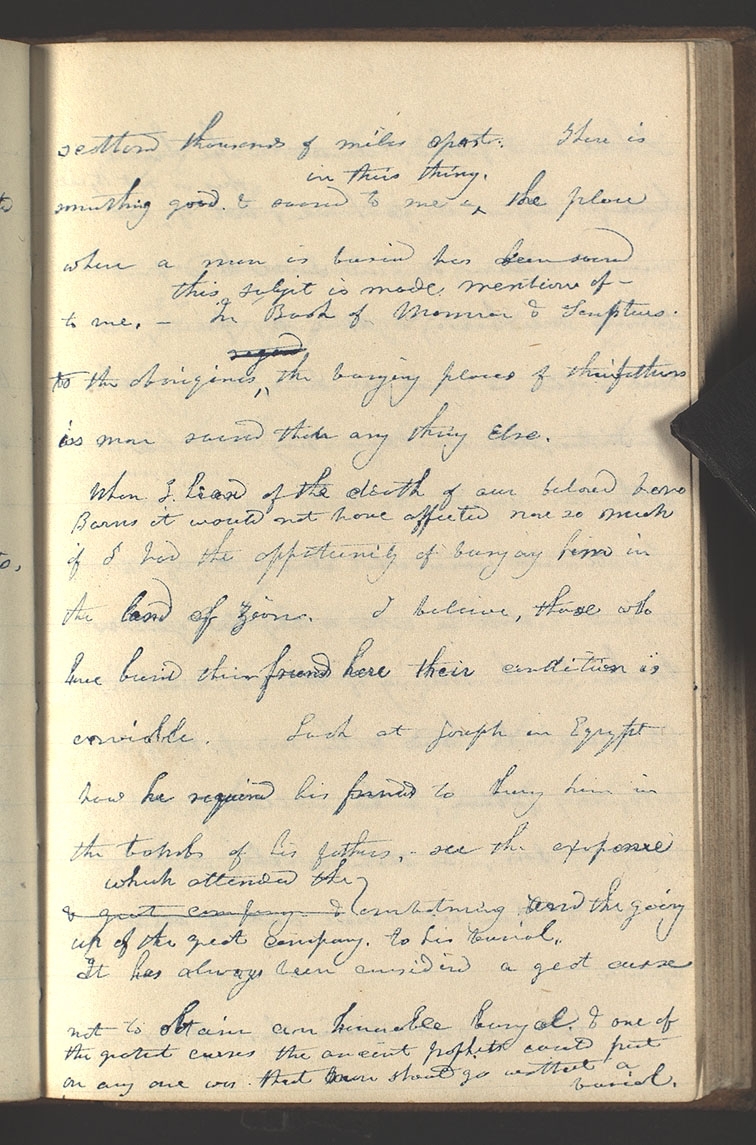 scatterd thousands of miles apart. There is
in this thing.
something good. & sacred to me ‸ the place
where a man is buried has been sacred
this subjet is made mention of -
to me. - In Book of Mormon & Scriptures.
regard
to the aborigines ‸ the burying places of their fathers
is more sacred than any thing else.
When I heard of the death of our beloved bero
Barns it would not have affected me so much
if I had the oppertunity of burying him in
the land of Zion. I believe, those who
have buried their friends here their condition is
enviable. Look at Joseph in Egypt
how he required his friends to bury him in
the tombs of his fathers, - see the expense
which attended the
& great company & embalming and the going
up of the great company. to his burial.
It has always been considerd a geat curse
not to obtain an honorable buryal. & one of
the greatest curses the ancient prophets could put
on any one was. that man should go without a
burial.